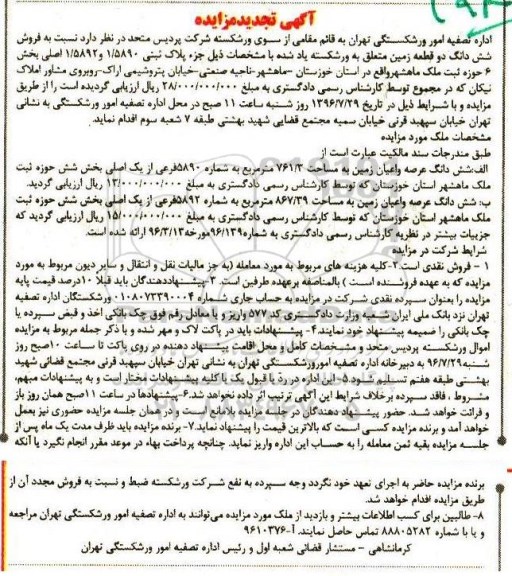 آگهی تجدیدمزایده
اداره تصفیه امور ورشکستگی تهران به قائم مقامی از سوی ورشکسته شرکت پردیس متحد در نظر دارد نسبت به فروش
شش دانگ دو قطعه زمین متعلق به ورشکسته یاد شده با مشخصات ذیل جزء پلاک ثبتی ۱/۵۸۹۰ و۱/۵۸۹۲ اصلی بخش
۶ حوزه ثبت ملک ماهشهرواقع در استان خوزستان –ماهشهر-ناحیه صنعتی-خیابان پتروشیمی اراک-روبروی مشاور املاک
نیکان که در مجموع توسط کارشناس رسمی دادگستری به مبلغ ۲۸/۰۰۰/۰۰۰/۰۰۰ ریال ارزیابی گردیده است را از طریق
مزایده و با شرایط ذیل در تاریخ ۱۳۹۶/۷/۲۹ روز شنبه ساعت ۱۱ صبح در محل اداره تصفیه امور ورشکستگی به نشانی
تهران خیابان سپهبد قرنی خیابان سمیه مجتمع قضایی شهید بهشتی طبقه ۷ شعبه سوم اقدام نماید.
مشخصات ملک مورد مزایده
طبق مندرجات سند مالکیت عبارت است از
الف:شش دانگ عرصه واعیان زمین به مساحت ۷۶۱/۲ مترمربع به شماره ۵۸۹۰فرعی از یک اصلی بخش شش حوزه ثبت
ملک ماهشهر استان خوزستان که توسط کارشناس رسمی دادگستری به مبلغ ۱۳/۰۰۰/۰۰۰/۰۰۰ ریال ارزیابی گردید.
ب: شش دانگ عرصه واعیان زمین به مساحت ۸۶۷/۳۹ مترمربع به شماره ۵۸۹۲فرعی از یک اصلی بخش شش حوزه ثبت
ملک ماهشهر استان خوزستان که توسط کارشناس رسمی دادگستری به مبلغ ۱۵/۰۰۰/۰۰۰/۰۰۰ ریال ارزیابی گردید که
جزییات بیشتر در نظریه کارشناس رسمی دادگستری به شماره۹۶/۱۳۹مورخه۹۶/۳/۱۳ ارائه شده است.
شرایط شرکت در مزایده
۱ – فروش نقدی است.۲-کلیه هزینه های مربوط به مورد معامله (به جز مالیات نقل و انتقال و سایر دیون مربوط به مورد
مزایده که به عهده فروشنده است ) بالمناصفه برعهده طرفین است. ۳-پیشنهاددهندگان باید قبلا ۱۰درصد قیمت پایه
مزایده را بعنوان سپرده نقدی شرکت در مزایده به حساب جاری شماره ۰۱۰۸۰۷۳۳۹۰۰۰۴ ورشکستگان اداره تصفیه
تهران نزد بانک ملی ایران شعبه وزارت دادگستری کد ۵۷۷ واریز و یا معادل رقم فوق چک بانکی اخذ و قبض سپرده یا
چک بانکی را ضمیمه پیشنهاد خود نمایند.۴- پیشنهادات باید در پاکت لاک و مهر شده و با ذکر جمله مربوط به مزایده
اموال ورشکسته پردیس متحد و مشخصات کامل و محل اقامت پیشنهاد دهنده در روی پاکت تا ساعت ۱۰صبح روز
شنبه۹۶/۷/۲۹ به دبیرخانه اداره تصفیه امورورشکستگی تهران به نشانی تهران خیابان سپهبد قرنی مجتمع قضائی شهید
بهشتی طبقه هفتم تسلیم شود.۵-این اداره در رد یا قبول یک یا کلیه پیشنهادات مختار است و به پیشنهادات مبهم،
مشروط ، فاقد سپرده برخلاف شرایط این آگهی ترتیب اثر داده نخواهد شد.۶-پیشنهادها در ساعت ۱۱صبح همان روز باز
و قرائت خواهد شد. حضور پیشنهاد دهندگان در جلسه مزایده بلامانع است و در همان جلسه مزایده حضوری نیز بعمل
خواهد آمد و برنده مزایده کسی است که بالاترین قیمت را پیشنهاد نماید.۷- برنده مزایده باید ظرف مدت یک ماه پس از
جلسه مزایده بقیه ثمن معامله را به حساب این اداره واریز نماید. چنانچه پرداخت بهاء در موعد مقرر انجام نگیرد یا آنکه
برنده مزایده حاضر به اجرای تعهد خود نگردد وجه سپرده به نفع شرکت ورشکسته ضبط و نسبت به فروش مجدد آن از
طریق مزایده اقدام خواهد شد.
۸- طالبین برای کسب اطلاعات بیشتر و بازدید از ملک مورد مزایده می‌توانند به اداره تصفیه امور ورشکستگی تهران مراجعه
و یا با شماره ۸۸۸۰۵۲۸۲ تماس حاصل نمایند. آ-۹۶۱۰۳۷۶
کرمانشاهی - مستشار قضائی شعبه اول و رئیس اداره تصفیه امور ورشکستگی تهران